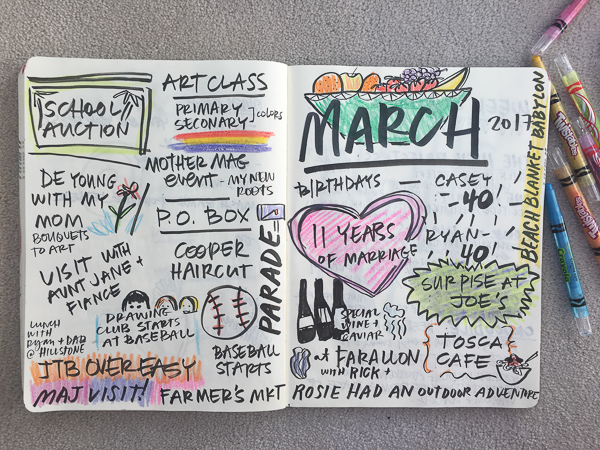 SCHOOL
AUCTION
ART CLASS
PRIMARY
SECONARY
colors
MOTHER MAG
EVENT - MY NEW
ROOTS
DE YOUNG
WITH MY
MOM
BOUQUETS
TO ART
P.O. BOX
COOPER
HAIRCUT
PARADE
VISIT WITH
AUNT JANE +
FIANCE
LUNCH
WITH
RYAN + DAD
@ HILLSTONE
DRAWING
CLUB STARTS
AT BASEBALL
BASEBALL
STARTS
JTB OVER EASY
MAJ VISIT!
FARMER'S MKT
MARCH
2017
BEACH BLANKET BABYLON
BIRTHDAYS — CASEY
-40-
RYAN-
40
11 YEARS
OF MARRIAGE
SURPISE AT
JOE'S
SPECIAL
WINE +
CAVIAR
at FARALLON
with RICK +
TOSCA
CAFE
ROSIE HAD AN OUTDOOR ADVENTURE